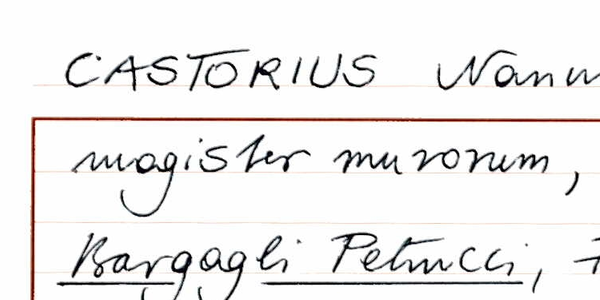 CASTORIUS
magister murorum,
Bargagli Petrucci,